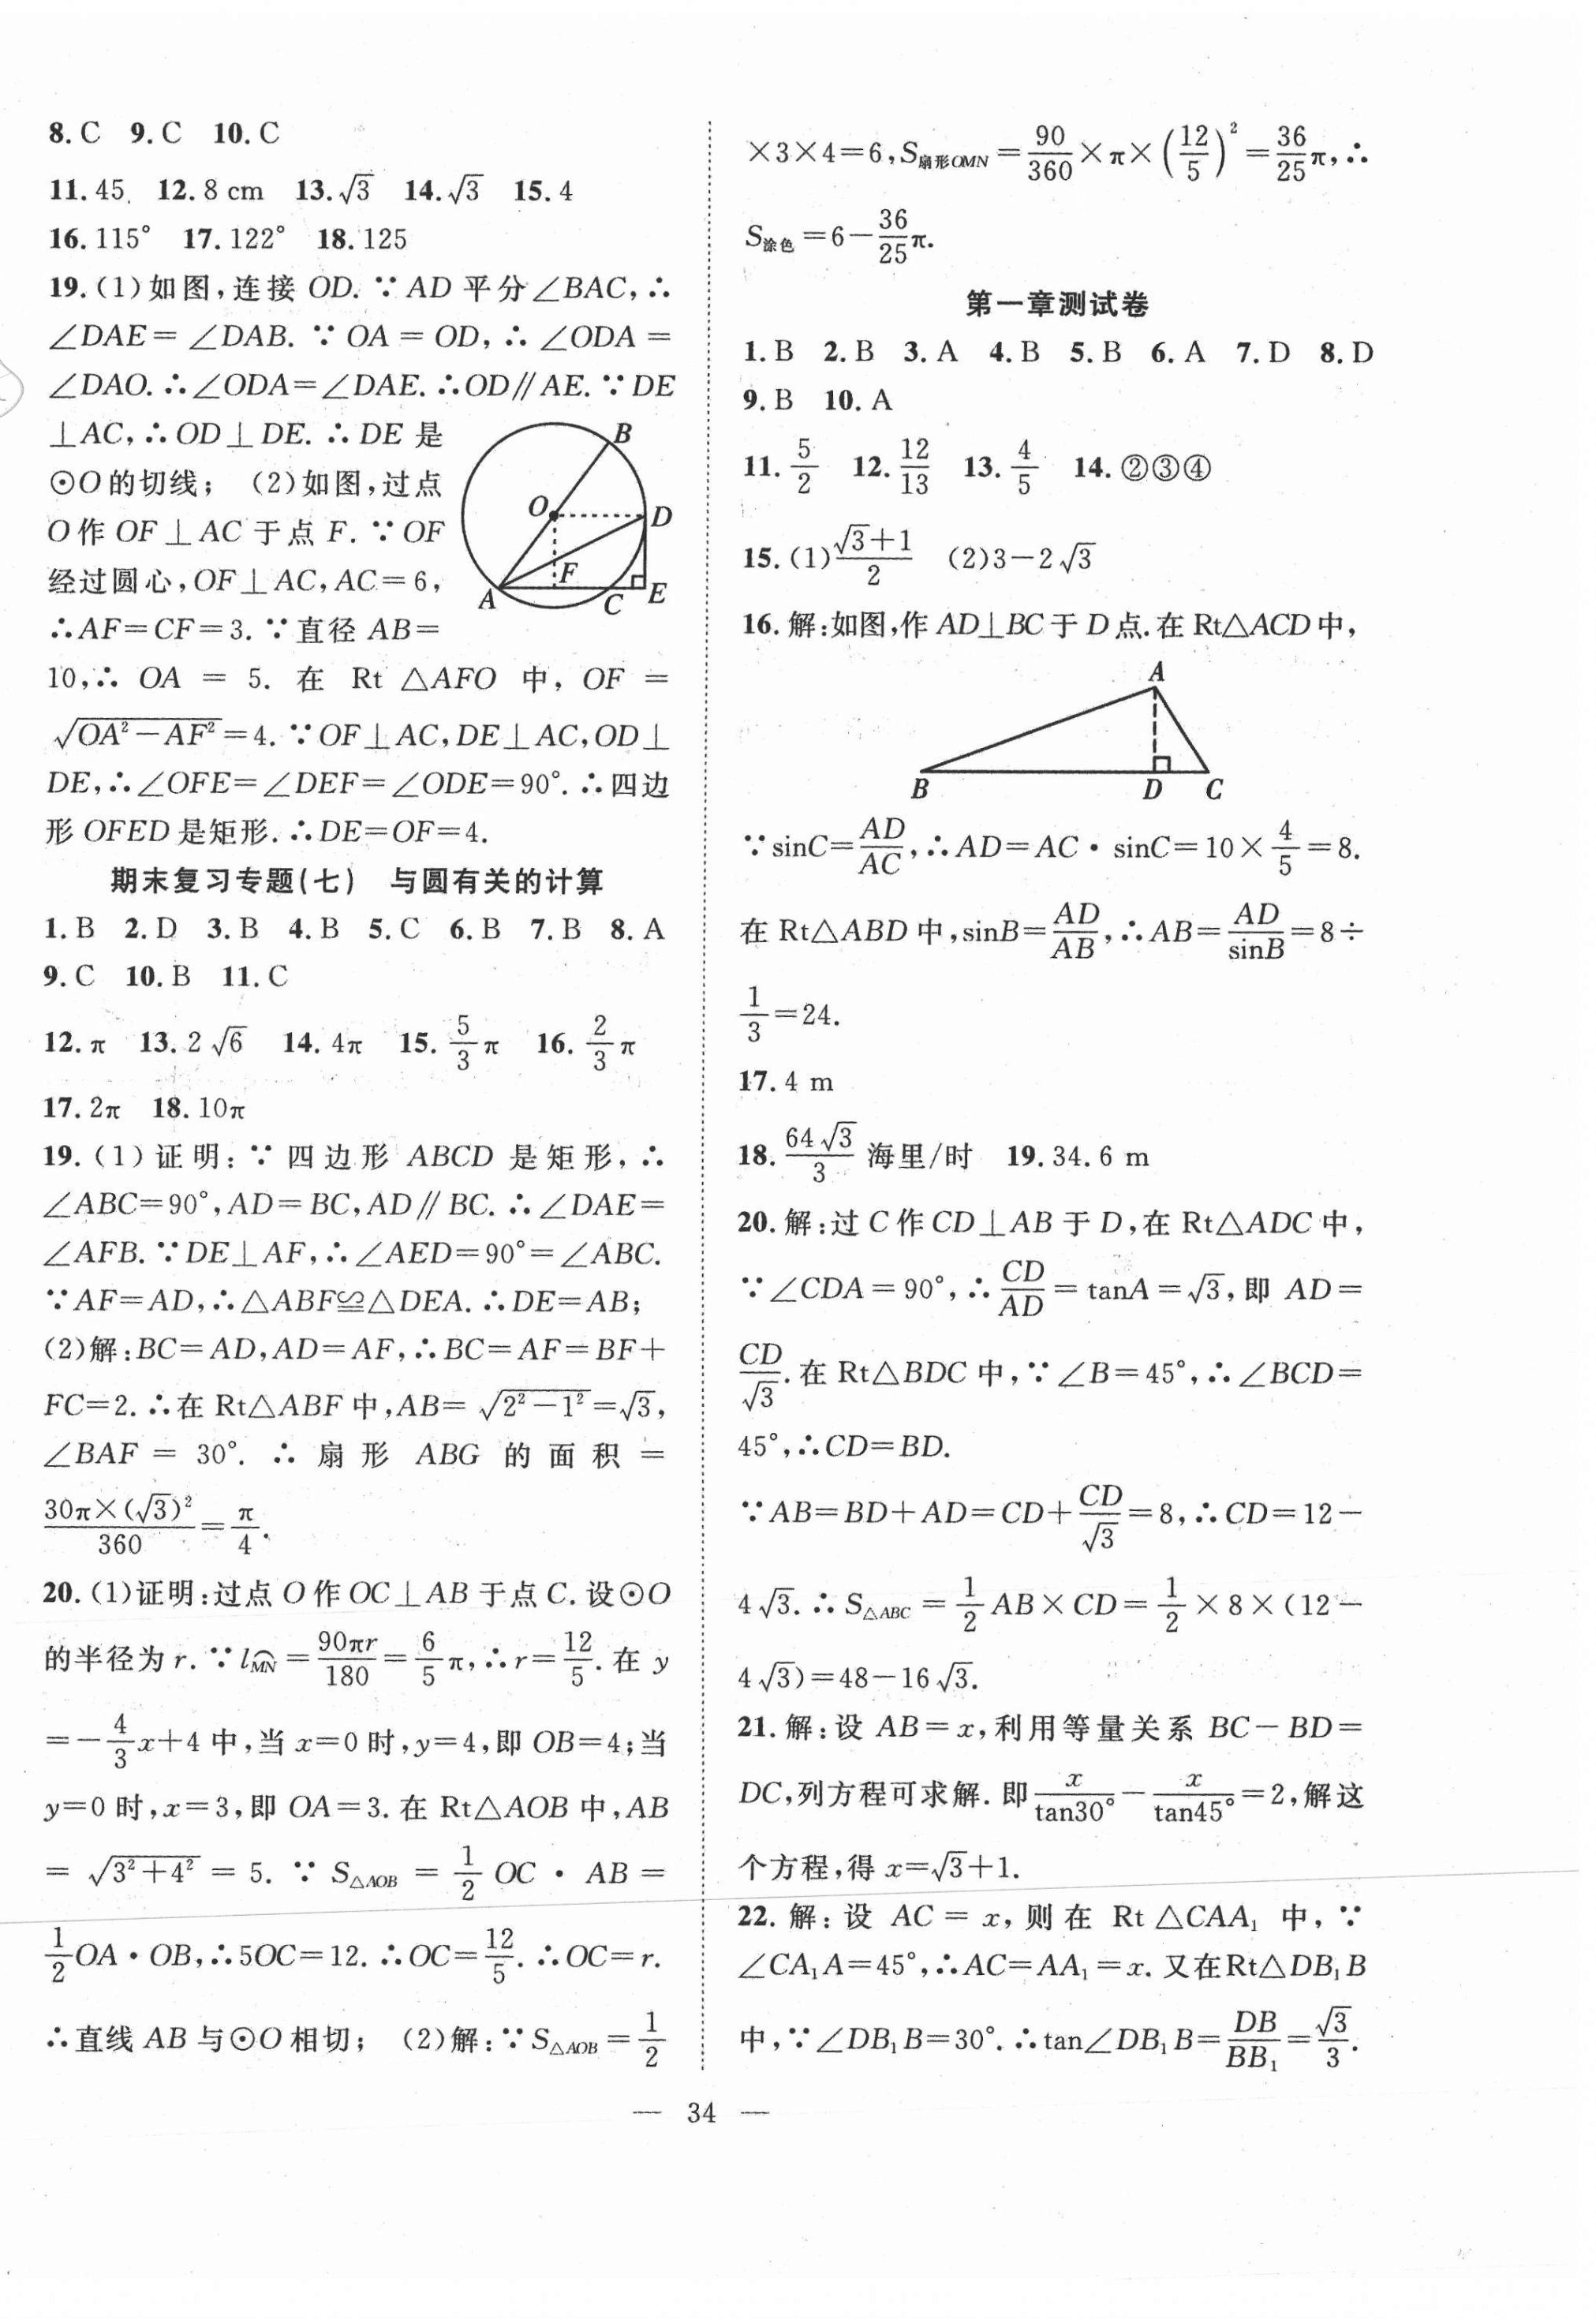 8. C  9. C  10. C
11. 45.  12. 8 cm  13. √3  14. √3  15. 4
16. 115°  17. 122°  18. 125
19. (1)如图,连接 OD. ∵ AD 平分∠BAC,∴
∠DAE= ∠DAB. ∵ OA = OD, ∴ ∠ODA =
∠DAO. ∴∠ODA=∠DAE. ∴OD∥AE. ∵DE
⊥AC,∴OD⊥DE. ∴DE 是
⊙O的切线; (2)如图,过点
O作 OF⊥AC 于点 F. ∵OF
经过圆心,OF⊥AC,AC=6,
∴AF=CF=3. ∵直径 AB=
B
O
D
F
A
C
E
10,∴ OA = 5. 在 Rt △AFO 中, OF =
√(OA²-AF²)=4. ∵OF⊥AC,DE⊥AC,OD⊥
DE,∴∠OFE=∠DEF=∠ODE=90°. ∴四边
形 OFED 是矩形. ∴DE=OF=4.
期末复习专题(七) 与圆有关的计算
1. B  2. D  3. B  4. B  5. C  6. B  7. B  8. A
9. C  10. B  11. C
12. π  13. 2√6  14. 4π  15. 5/3 π  16. 2/3 π
17. 2π  18. 10π
19. (1)证明: ∵ 四边形 ABCD 是矩形, ∴
∠ABC=90°,AD=BC,AD∥BC. ∴∠DAE=
∠AFB. ∵DE⊥AF,∴∠AED=90°=∠ABC.
∵AF=AD,∴△ABF≌△DEA. ∴DE=AB;
(2)解:BC=AD,AD=AF,∴BC=AF=BF+
FC=2. ∴在 Rt△ABF 中,AB= √(2²-1²)=√3,
∠BAF = 30°. ∴ 扇形 ABG 的面积 =
30π×(√3)²/360=π/4.
20. (1)证明:过点 O 作 OC⊥AB 于点 C. 设⊙O
的半径为 r. ∵l⌒MN=90πr/180=6/5 π,∴r=12/5. 在 y
=-4/3 x+4 中,当 x=0 时,y=4,即 OB=4;当
y=0 时,x=3,即 OA=3. 在 Rt△AOB 中,AB
= √(3²+4²) = 5. ∵ S△AOB = 1/2 OC · AB =
1/2 OA·OB,∴5OC=12. ∴OC=12/5. ∴OC=r.
∴直线 AB 与⊙O 相切; (2)解:∵S△AOB=1/2
×3×4=6,S扇形OMN=90/360×π×(12/5)²=36/25 π,∴
S涂色=6-36/25 π.
第一章测试卷
1. B  2. B  3. A  4. B  5. B  6. A  7. D  8. D
9. B  10. A
11. 5/2  12. 12/13  13. 4/5  14. ②③④
15. (1)(√3+1)/2  (2)3-2√3
16. 解:如图,作 AD⊥BC于 D点. 在 Rt△ACD中,
A
B
D
C
∵sinC=AD/AC,∴AD=AC·sinC=10×4/5=8.
在 Rt△ABD 中,sinB=AD/AB,∴AB=AD/sinB=8÷
1/3=24.
17. 4 m
18. 64√3/3 海里/时  19. 34. 6 m
20. 解:过 C 作 CD⊥AB 于 D,在 Rt△ADC 中,
∵∠CDA=90°,∴CD/AD=tanA=√3,即 AD=
CD/√3. 在 Rt△BDC 中,∵∠B=45°,∴∠BCD=
45°,∴CD=BD.
∵AB=BD+AD=CD+CD/√3=8,∴CD=12-
4√3. ∴S△ABC=1/2 AB×CD=1/2×8×(12-
4√3)=48-16√3.
21. 解:设 AB=x,利用等量关系 BC-BD=
DC,列方程可求解. 即x/tan30°-x/tan45°=2,解这
个方程,得 x=√3+1.
22. 解: 设 AC = x, 则在 Rt △CAA₁ 中, ∵
∠CA₁A=45°,∴AC=AA₁=x. 又在Rt△DB₁B
中,∵∠DB₁B=30°. ∴tan∠DB₁B=DB/BB₁=√3/3.
— 34 —